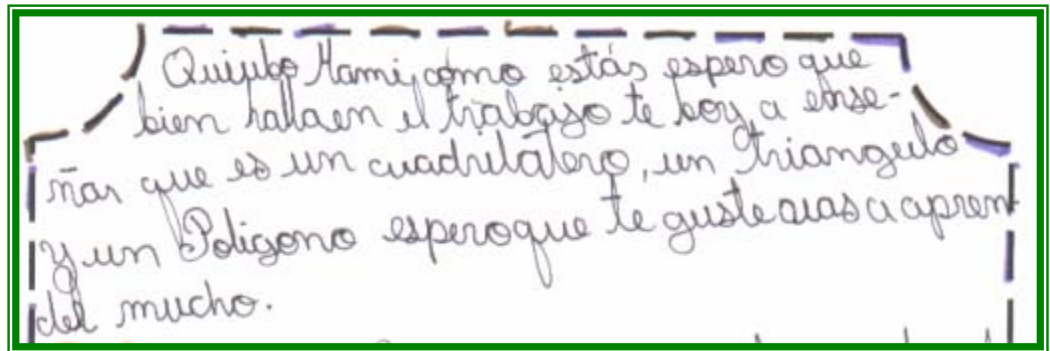 Quiubo Mami, cómo estás espero que
bien halla en el trabajo te boy a ense-
ñar que es un cuadrilatero, un triangulo
y un Poligono espero que te guste a apren-
der mucho.